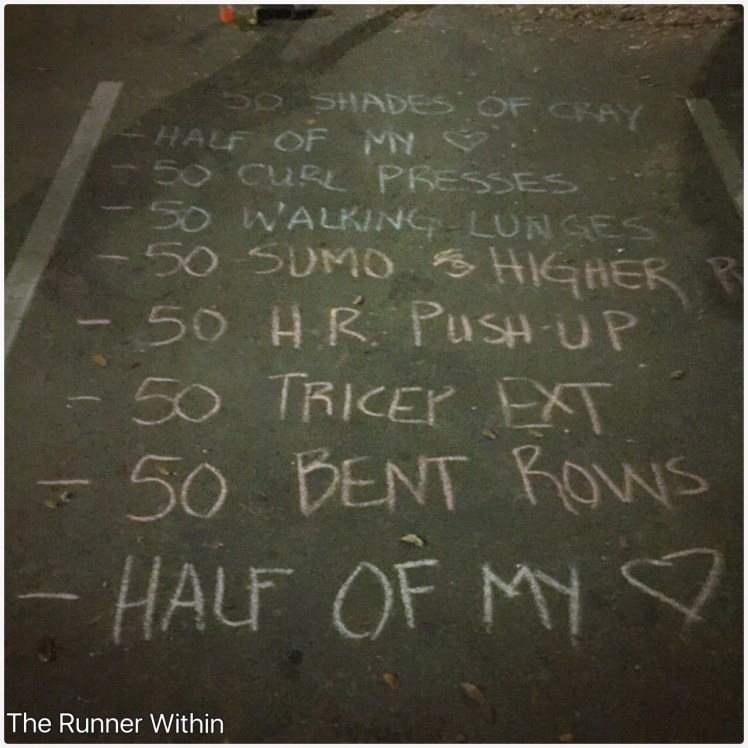 50 SHADES OF CRAY
- HALF OF MY ♡
- 50 CURL PRESSES
- 50 WALKING LUNGES
- 50 SUMO & HIGHER
- 50 H.R. PUSH-UP
- 50 TRICEP EXT
- 50 BENT ROWS
- HALF OF MY ♡
The Runner Within